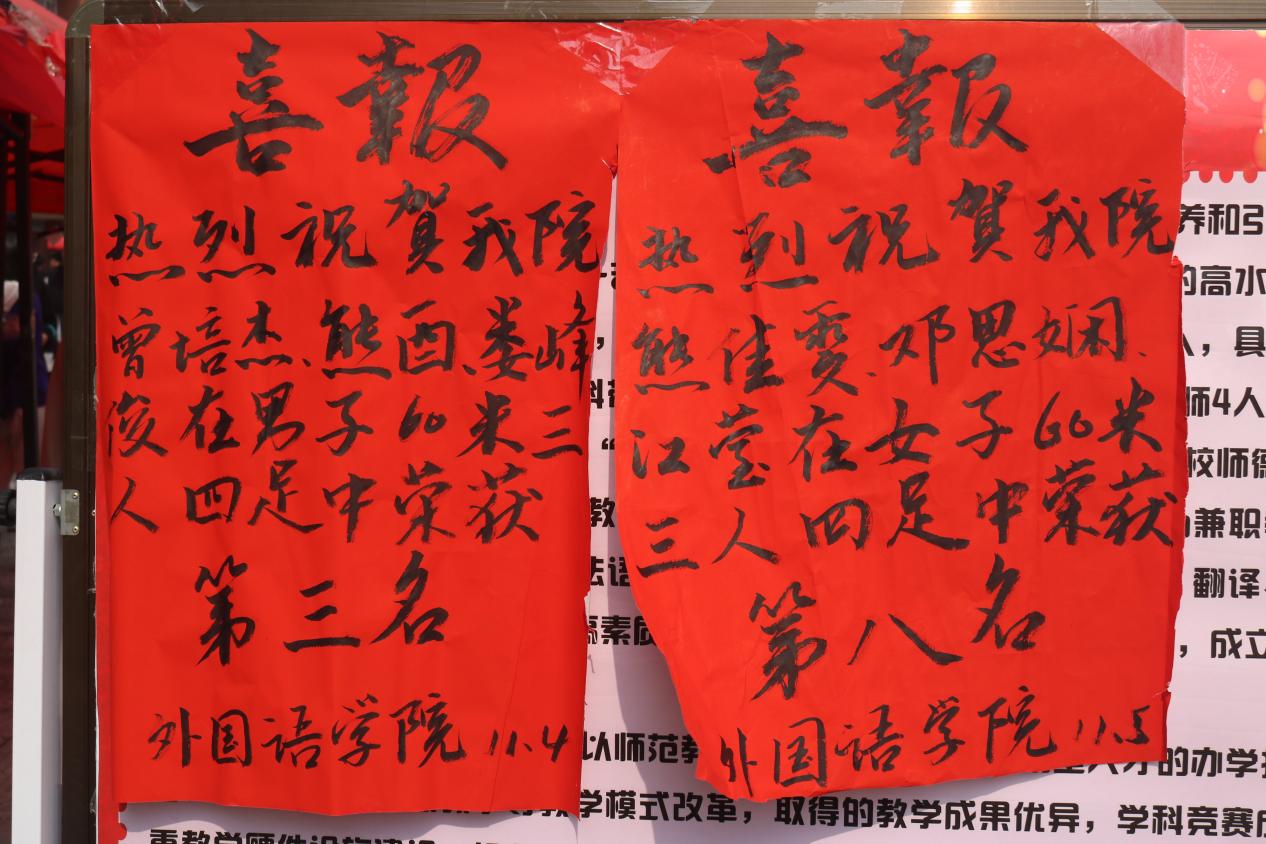 喜報
热烈祝賀我院
曾培杰、熊酉、娄峰
俊在男子60米三
人四足中荣获
第三名
外国语学院 11.4
喜報
热烈祝賀我院
熊佳雯、邓思娴、
江莹在女子60米
三人四足中荣获
第八名
外国语学院 11.5
养和引
的高水
人，具
师4人
校师德
兼职
翻译、
，成立
以师范教
才的办学
学模式改革，取得的教学成果优异，学科竞赛成
重教学硬件设施建设